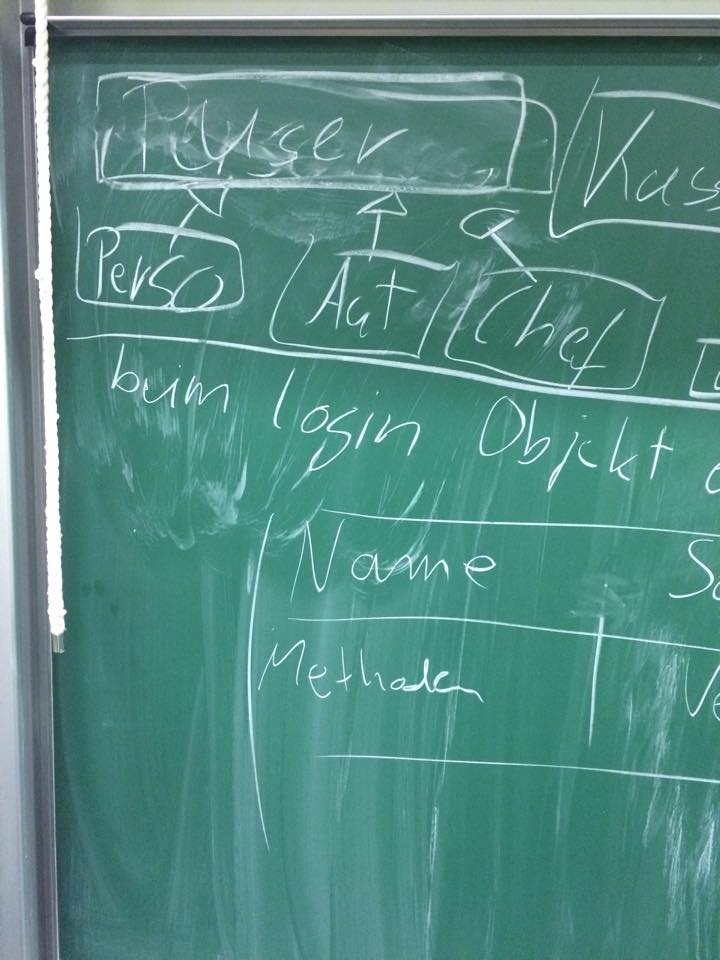 Parser Kass
Perso Aqt Chef
beim login Objekt e
Name Sc
Methoden Ve